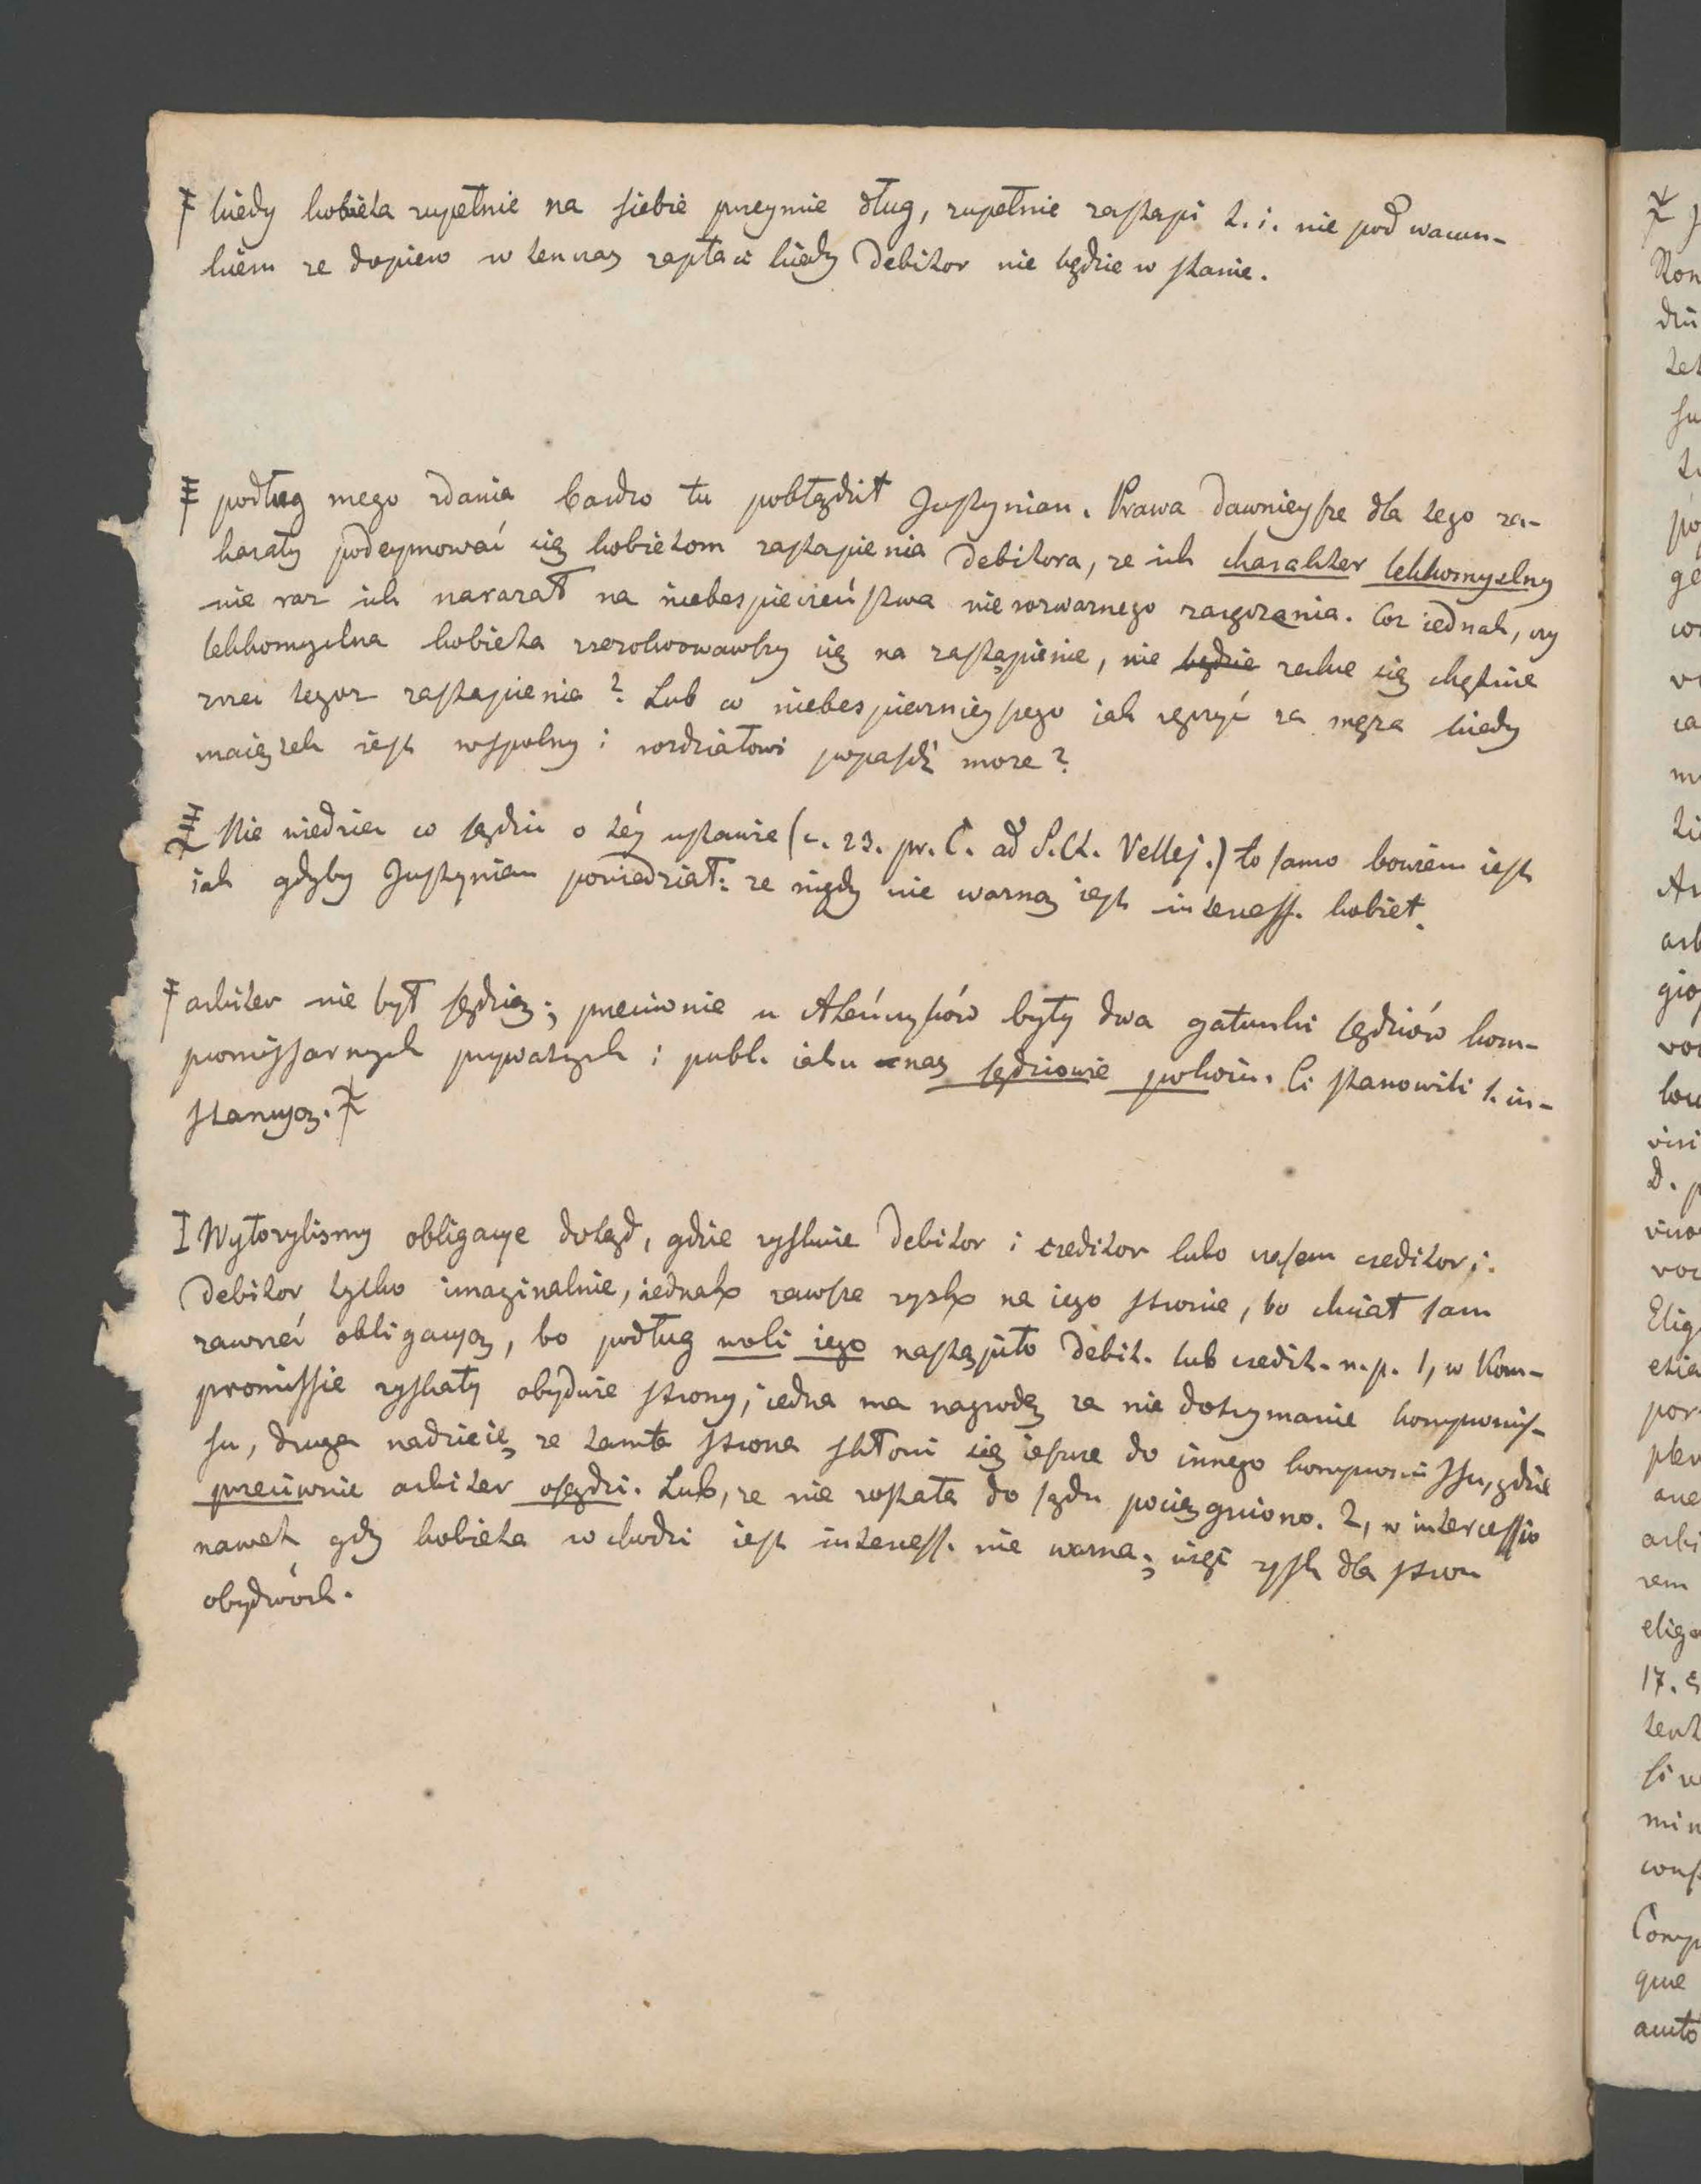 kiedy kobieta zupełnie na siebie przeymie dług, zupełnie zastąpi t. i. nie pod warun-
kiem ze dopiero w tenczas zapłaci kiedy Debitor nie będzie w stanie.
podług mego zdania bardzo tu pobłądził Justynian. Prawa dawnieysze dla tego za-
kazały podeymować się kobietom zastąpienia Debitora, ze ich charakter lekkomyslny
nie raz ich narazał na niebespieczeństwa nierozwaznego zaręczania. Coz iednak, czy
lekkomyslna kobieta zrezolwowawszy się na zastąpienie, nie będzie zechce się chętnie
zrzec tegoz zastąpienia? Lub co niebespiecznieyszego iak ręczyć za męza kiedy
maiątek iest wspolny i rozdziałowi popaśdź moze?
Nie wiedzieć co sądzić o téy ustawie (c. 23. pr. C. ad S.Ct. Vellej.) to samo bowiem iest
iak gdyby Justynian powiedział: ze nigdy nie wazną iest intercess. kobiet.
arbiter nie był sędzią; przeciwnie u Ateńczyków były dwa gatunki sędziów kom-
promissarnych prywatnych i publ. iak u nas sędziowie pokoiu. Ci stanowili 1. in-
stancyą.
Wyłozylismy obligacye dotąd, gdzie ryskuie Debitor i creditor lubo czasem creditor i
Debitor tylko imaginalnie, iednak zawsze rysk na iego stronie, bo chciał sam
zawrzeć obligacyą, bo podług woli iego nastąpiło debit. lub credit. n.p. 1, w Kom-
promissie ryskały obydwie strony, iedna ma nagrodę za nie dotrzymanie kompromis-
su, druga nadzieię ze tamta strona skłoni się iescze do innego kompromissu, gdzie
przeciwnie arbiter osądzi. Lub, ze nie została do sądu pociągniono. 2, w intercessio
nawet gdy kobieta wchodzi iest intercess. nie wazna; więc rysk dla stron
obydwóch.